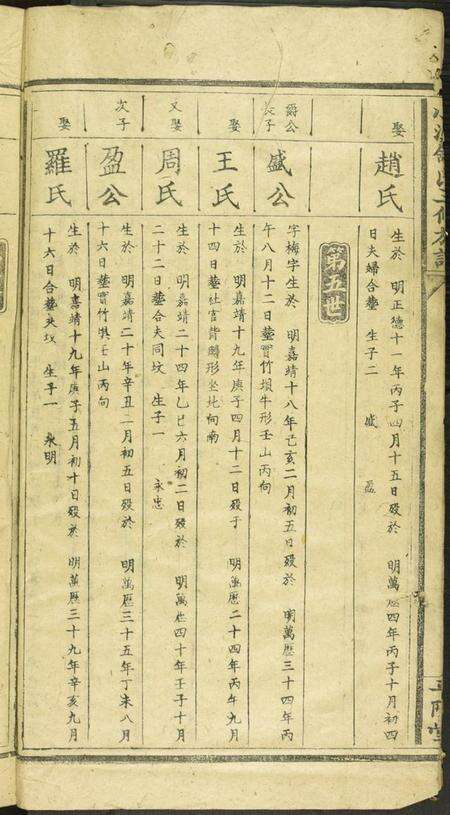 娶
趙氏
生於 明正德十一年丙子四月十五日殁於 明萬歷四年丙子十月初四
日夫婦合塟 生子二 盛 盈
第五世
爵公
長子
盛公
字梅字生於 明嘉靖十八年己亥二月初五日殁於 明萬歷三十四年丙
午八月十二日塟賈竹垻牛形壬山丙向
娶
王氏
生於 明嘉靖十九年庚子四月十二日殁于 明萬歷二十四年丙午九月
十四日塟社官背 形坐北向南
又娶
周氏
生於 明嘉靖二十四年乙巳六月初二日殁於 明萬歷四十年壬子十月
二十二日塟合夫同坟 生子一 永忠
次子
盈公
生於 明嘉靖二十年辛丑二月初五日殁於 明萬歷三十五年丁未八月
十六日塟賈竹垻壬山丙向
娶
羅氏
生於 明嘉靖十九年庚子五月初十日殁於 明萬歷三十九年辛亥九月
十六日合塟夫坟 生子一 永明